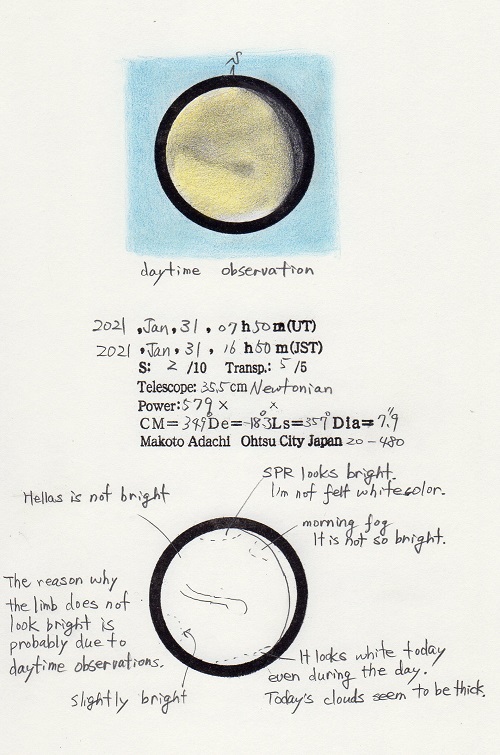 S
daytime observation
2021 , Jan, 31 , 07 h 50 m(UT)
2021 , Jan, 31 , 16 h 50 m(JST)
S: 2 /10 Transp.: 5 /5
Telescope: 35.5 cm Newtonian
Power: 579 × ×
CM= 349° De= -18.3 Ls= 357° Dia= 7.″9
Makoto Adachi Ohtsu City Japan 20-480
SPR looks bright.
I'm not felt whitecolor.
Hellas is not bright
morning fog
It is not so bright.
The reason why
the limb does not
look bright is
probably due to
daytime observations.
slightly bright
It looks white today
even during the day.
Today's clouds seem to be thick.